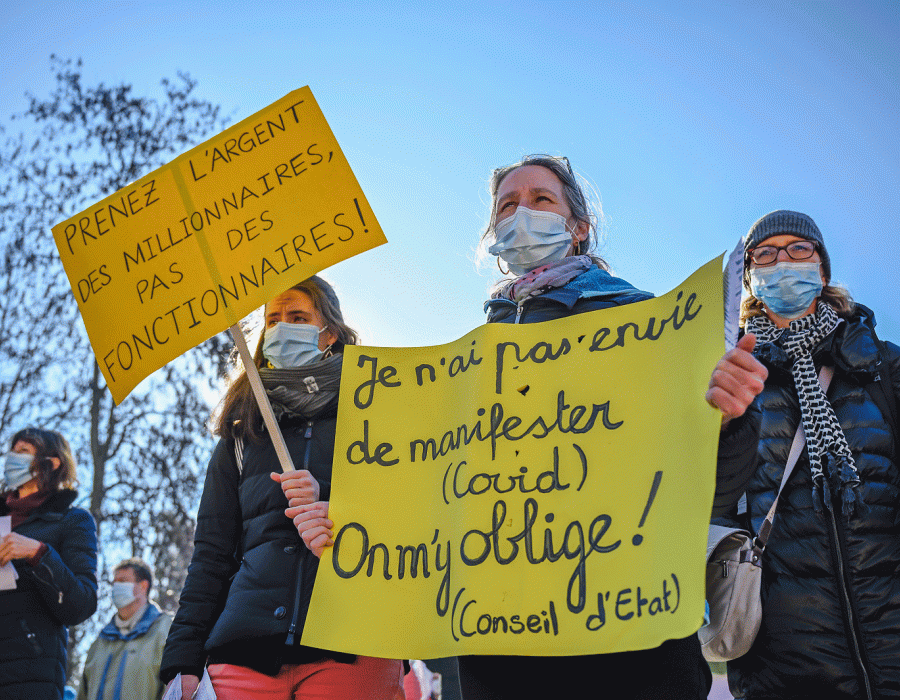 PRENEZ L'ARGENT
DES MILLIONNAIRES,
PAS DES
FONCTIONNAIRES!
Je n'ai pas envie
de manifester
(Covid)
On m'y oblige!
(Conseil d'Etat)